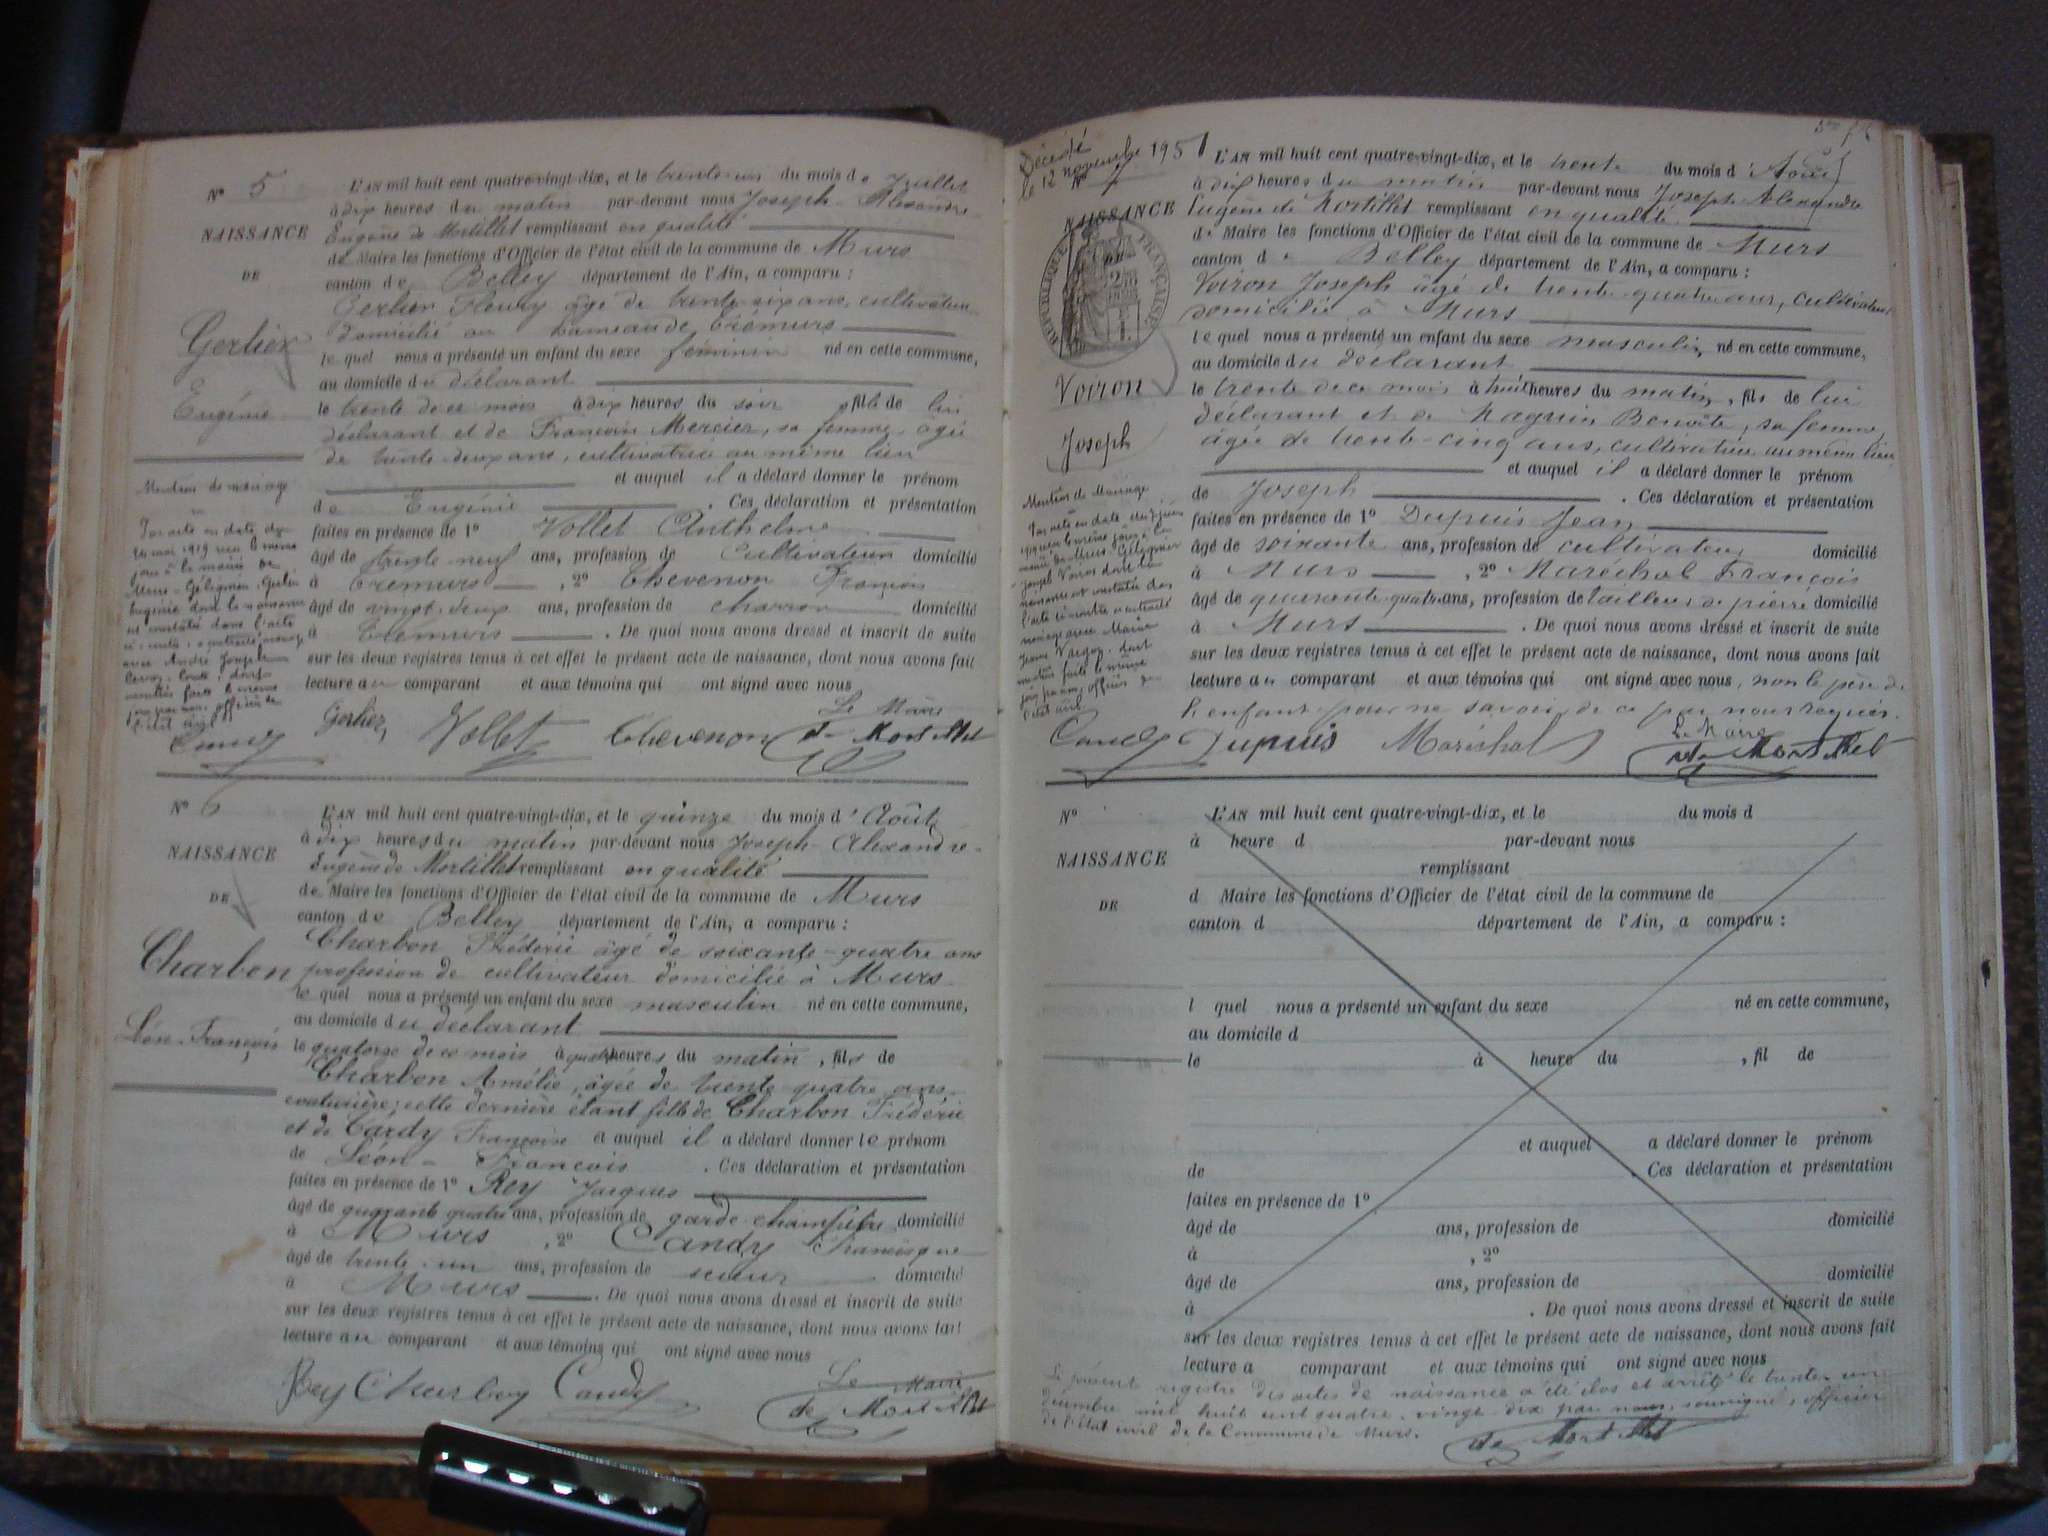 Nº 5
L'AN mil huit cent quatre-vingt-dix, et le trente-un du mois de Juillet
à dix heures du matin par-devant nous Joseph-Alexandre-
Eugène de Mortillet remplissant en qualité
NAISSANCE
de Maire les fonctions d'Officier de l'état civil de la commune de Murs
DE
canton de Belley département de l'Ain, a comparu :
Gerlier Fleury âgé de trente-six ans, cultivateur
domicilié au hameau de Crémurs
Gerlier
lequel nous a présenté un enfant du sexe féminin né en cette commune,
au domicile du déclarant
Eugénie
le trente de ce mois à dix heures du soir, fille de lui
déclarant et de Mercier, sa femme, âgée
de trente-deux ans, cultivatrice au même lieu
et auquel il a déclaré donner le prénom
de Eugénie . Ces déclaration et présentation
faites en présence de 1º Vollet Anthelme
âgé de trente neuf ans, profession de Cultivateur domicilié
à Crémurs , 2º Chevenon François
âgé de vingt-deux ans, profession de charron domicilié
à Crémurs . De quoi nous avons dressé et inscrit de suite
sur les deux registres tenus à cet effet le présent acte de naissance, dont nous avons fait
lecture au comparant et aux témoins qui ont signé avec nous
Mention de mariage
Par acte en date du
mai 1919 le même
jour à la mairie de
Murs-Gélignieux, Gerlier
Eugénie dont la naissance
est constatée dans l'acte
a contracté mariage
avec André Joseph
l'état civil
Le Maire
Candy Gerlier Vollet Chevenon de Mortillet
Nº 6
L'AN mil huit cent quatre-vingt-dix, et le quinze du mois d'Août
à dix heures du matin par-devant nous Joseph-Alexandre-
Eugène de Mortillet remplissant en qualité
NAISSANCE
de Maire les fonctions d'Officier de l'état civil de la commune de Murs
DE
canton de Belley département de l'Ain, a comparu :
Charbon Frédéric âgé de soixante-quatre ans
Charbon
profession de cultivateur domicilié à Murs
lequel nous a présenté un enfant du sexe masculin né en cette commune,
au domicile du déclarant
Léon-François
le quatorze de ce mois à quatre heures du matin, fils de
Charbon Amélie, âgée de trente quatre ans
couturière; cette dernière étant fille de Charbon Frédéric
et de Cardy Françoise et auquel il a déclaré donner le prénom
de Léon-François . Ces déclaration et présentation
faites en présence de 1º Rey Jacques
âgé de quarante quatre ans, profession de garde-champêtre domicilié
à Murs , 2º Candy Francisque
âgé de trente-un ans, profession de scieur domicilié
à Murs . De quoi nous avons dressé et inscrit de suite
sur les deux registres tenus à cet effet le présent acte de naissance, dont nous avons fait
lecture au comparant et aux témoins qui ont signé avec nous
Le Maire
Rey Charbon Candy de Mortillet
Décédé
le 12 novembre 1951
Nº 7
L'AN mil huit cent quatre-vingt-dix, et le trente du mois d'Août
à dix heures du matin par-devant nous Joseph-Alexandre
Eugène de Mortillet remplissant en qualité
NAISSANCE
de Maire les fonctions d'Officier de l'état civil de la commune de Murs
canton de Belley département de l'Ain, a comparu :
RÉPUBLIQUE FRANÇAISE
Voiron Joseph âgé de trente-quatre ans, cultivateur
domicilié à Murs
lequel nous a présenté un enfant du sexe masculin, né en cette commune,
au domicile du déclarant
Voiron
le trente de ce mois à huit heures du matin, fils de lui
déclarant et de Benoîte, sa femme,
Joseph
âgée de trente-cinq ans, cultivatrice au même lieu
et auquel il a déclaré donner le prénom
de Joseph . Ces déclaration et présentation
faites en présence de 1º Dupuis Jean
âgé de soixante ans, profession de cultivateur domicilié
à Murs , 2º Maréchal François
âgé de quarante-quatre ans, profession de tailleur de pierre domicilié
à Murs . De quoi nous avons dressé et inscrit de suite
sur les deux registres tenus à cet effet le présent acte de naissance, dont nous avons fait
lecture au comparant et aux témoins qui ont signé avec nous, non le père de
l'enfant pour ne savoir de ce par nous requis.
Mention de Mariage
Par acte en date du
le même jour à la
mairie de Murs-Gélignieux
Joseph Voiron dont la
naissance est constatée dans
l'acte ci-contre a contracté
mariage avec Marie
Jeanne dont
mention faite le même
jour par nous, officier de
l'état civil
Le Maire
Candy Dupuis Maréchal de Mortillet
Nº
L'AN mil huit cent quatre-vingt-dix, et le du mois d
à heure d par-devant nous
NAISSANCE
remplissant
d Maire les fonctions d'Officier de l'état civil de la commune de
DE
canton d département de l'Ain, a comparu :
l quel nous a présenté un enfant du sexe né en cette commune,
au domicile d
le à heure du , fil de
et auquel a déclaré donner le prénom
de . Ces déclaration et présentation
faites en présence de 1º
âgé de ans, profession de domicilié
à , 2º
âgé de ans, profession de domicilié
à . De quoi nous avons dressé et inscrit de suite
sur les deux registres tenus à cet effet le présent acte de naissance, dont nous avons fait
lecture a comparant et aux témoins qui ont signé avec nous
Le présent registre des actes de naissance a été clos et arrêté le trente-un
décembre mil huit cent quatre-vingt-dix par nous, soussigné, officier
de l'état civil de la Commune de Murs.
de Mortillet